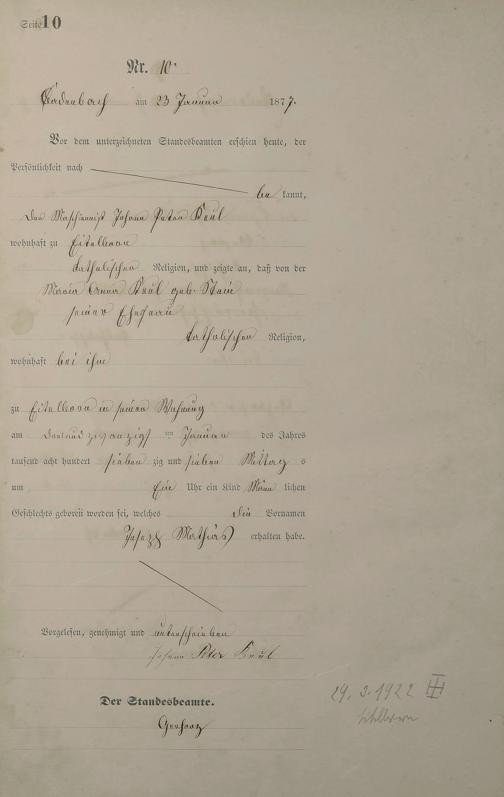 Seite 10
Nr. 10
Cadenbach am 23 Januar 1877.
Vor dem unterzeichneten Standesbeamten erschien heute, der
Persönlichkeit nach
be kannt,
Der Maschienist Johann Peter Keul
wohnhaft zu Eitelborn
katholischen Religion, und zeigte an, daß von der
Maria Anna Keul geb. Stein
seiner Ehefrau
katholischen Religion,
wohnhaft bei ihm
zu Eitelborn in seiner Wohnung
am Januar des Jahres
tausend acht hundert sieben zig und sieben Mittag s
um Ein Uhr ein Kind Männ lichen
Geschlechts geboren worden sei, welches die Vornamen
Joseph Mathias erhalten habe.
Vorgelesen, genehmigt und unterschrieben
Johann Peter Keul
Der Standesbeamte.
29.3.1922